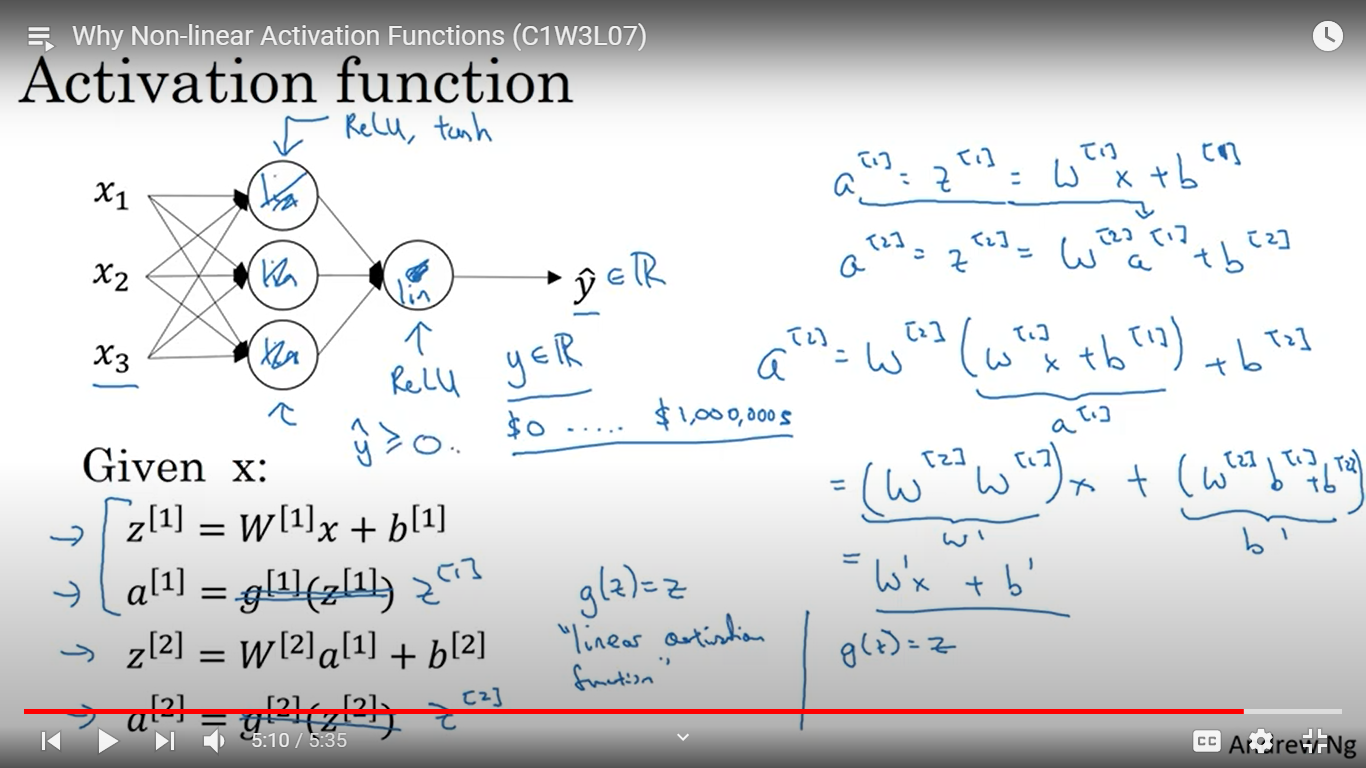 Why Non-linear Activation Functions (C1W3L07)
Activation function
ReLU, tanh
x₁
x₂
x₃
lin
ŷ ∈ ℝ
ReLU
ŷ ≥ 0..
y ∈ ℝ
$0 ..... $1,000,000s
Given x:
→ z[1] = W[1]x + b[1]
→ a[1] = g[1](z[1]) z[1]
→ z[2] = W[2]a[1] + b[2]
→ a[2] = g[2](z[2]) z[2]
g(z) = z
"linear activation
function"
a[1] = z[1] = W[1]x + b[1]
a[2] = z[2] = W[2]a[1] + b[2]
a[2] = W[2](W[1]x + b[1]) + b[2]
a[1]
= (W[2]W[1])x + (W[2]b[1] + b[2])
W' b'
= W'x + b'
g(z) = z
5:10 / 5:35
CC
Andrew Ng